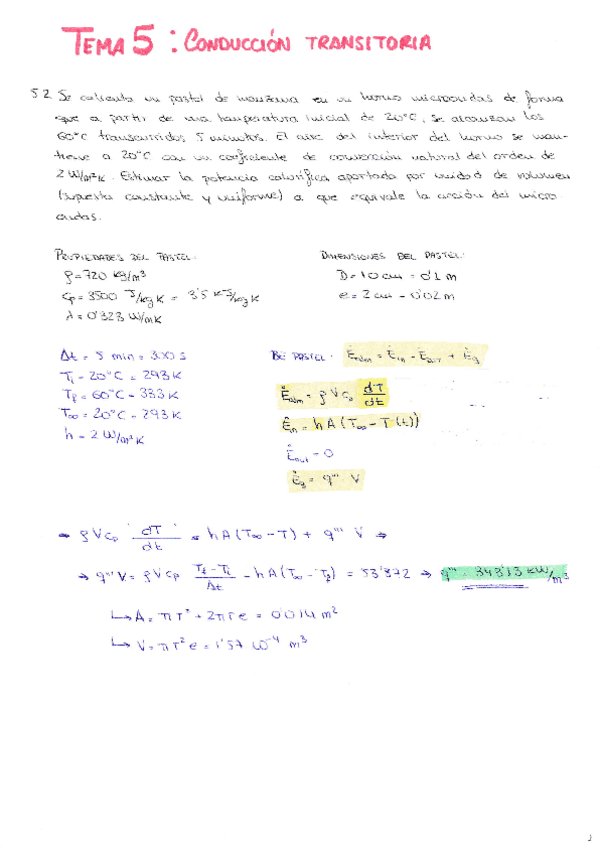 TEMA 5 : CONDUCCIÓN TRANSITORIA
5.2. Se calienta un pastel de manzana en un horno microondas de forma
que a partir de una temperatura inicial de 20°C, se alcanzan los
60°C transcurridos 5 minutos. El aire del interior del horno se man-
tiene a 20°C con un coeficiente de convección natural del orden de
2 W/m²K. Estimar la potencia calorífica aportada por unidad de volumen
(supuesta constante y uniforme) a que equivale la acción del micro
ondas.
PROPIEDADES DEL PASTEL:
ρ=720 kg/m³
Cp = 3500 J/kg K = 3'5 KJ/kg K
λ = 0'323 W/mK
DIMENSIONES DEL PASTEL:
D = 10 cm = 0'1 m
e = 2 cm = 0'02 m
Δt = 5 min = 300 s
Ti = 20°C = 293 K
Tf = 60°C = 333 K
T∞ = 20°C = 293 K
h = 2 W/m²K
BE PASTEL: Ėalm = Ėin - Ėout + Ėg
Ėalm = ρ V Cp dT/dt
Ėin = h A (T∞ - T(t))
Ėout = 0
Ėg = q''' V
→ ρ V Cp dT/dt = h A (T∞ - T) + q''' V →
→ q''' V = ρ V Cp (Tf - Ti)/Δt - h A (T∞ - Tf) = 53'872 → q''' = 343'13 kW/m³
↳ A = π r² + 2π r e = 0'014 m²
↳ V = π r² e = 1'57 10⁻⁴ m³